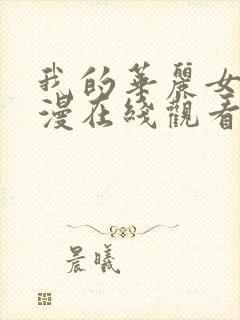 我的華麗女
漫在綫觀看
晨曦